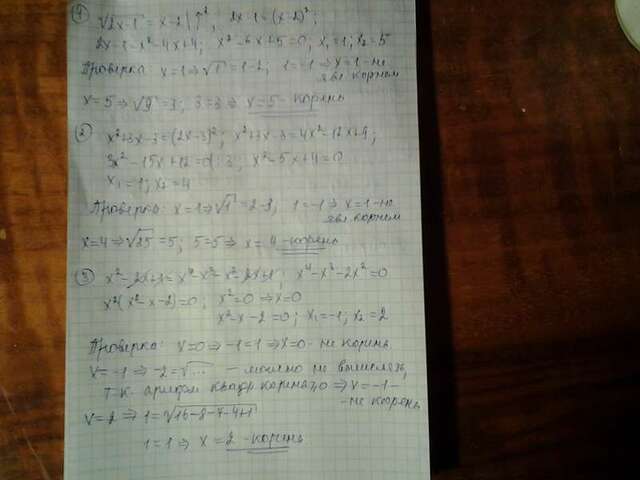 ① √2x-1 = x-2 |↑²; 2x-1=(x-2)²;
2x-1=x²-4x+4; x²-6x+5=0; x₁=1; x₂=5
Проверка: x=1⇒√1=1-2; 1=-1⇒x=1-не
явл корнем
x=5⇒√9=3; 3=3⇒x=5-корень
② x²+3x-3=(2x-3)²; x²+3x-3=4x²-12x+9;
3x²-15x+12=0|:3; x²-5x+4=0
x₁=1; x₂=4
Проверка: x=1⇒√1=2-3; 1=-1⇒x=1-не
явл корнем
x=4⇒√25=5; 5=5⇒x=4-корень
③ x²-2x+1=x⁴-x³-x²-2x+1; x⁴-x³-2x²=0
x²(x²-x-2)=0; x²=0⇒x=0
x²-x-2=0; x₁=-1; x₂=2
Проверка: x=0⇒-1=1⇒x=0-не корень
x=-1⇒-2=√... - можно не вычислять,
т.к. арифм квадр корень≥0⇒x=-1-
-не корень
x=2⇒1=√16-8-4-4+1
1=1⇒x=2-корень